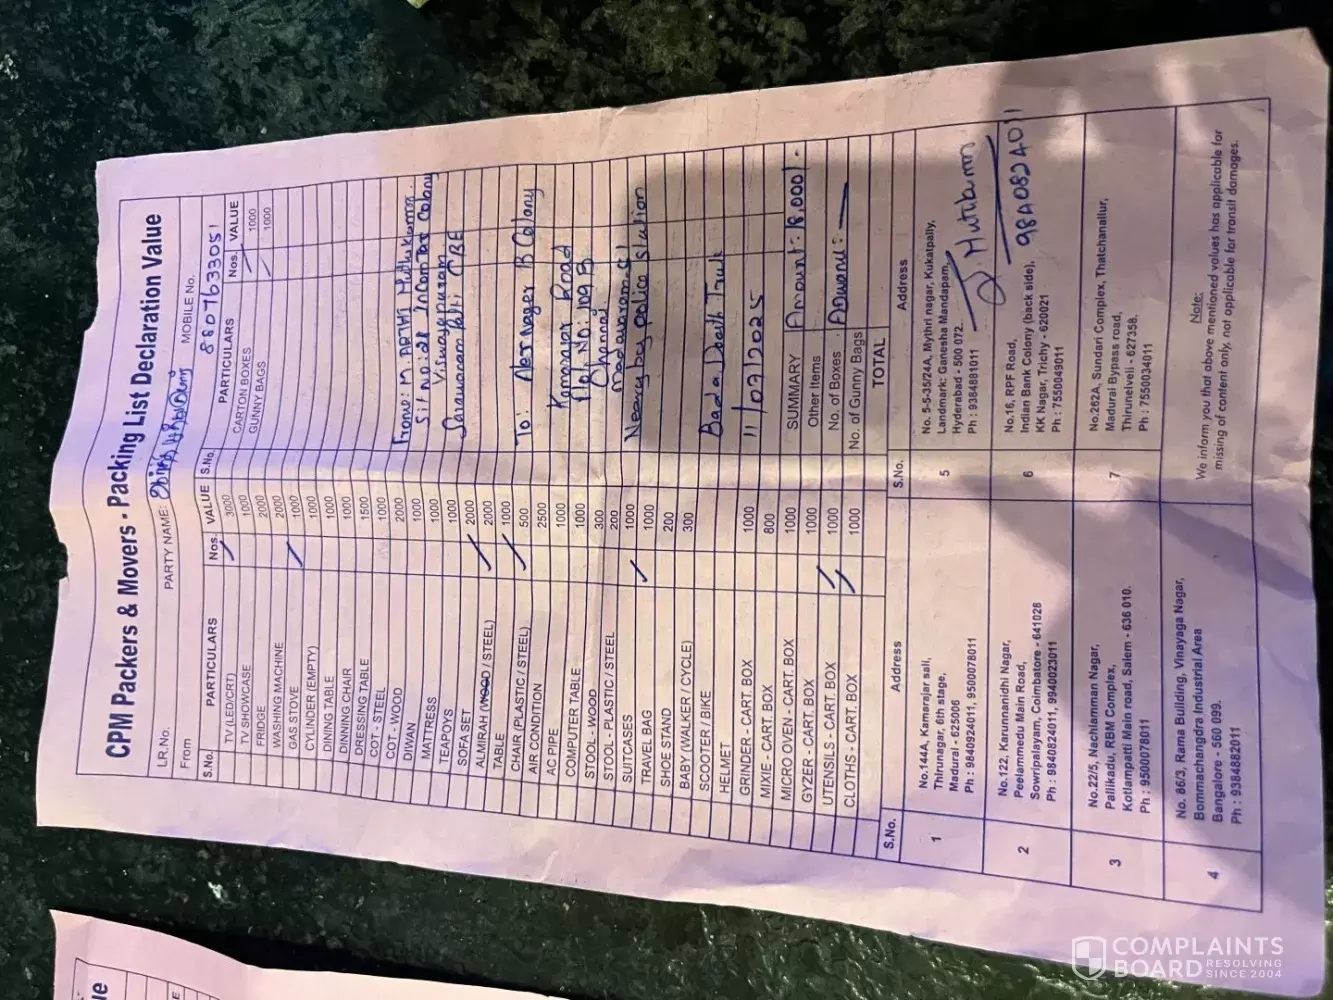 CPM Packers & Movers - Packing List Declaration Value
LR.No.
PARTY NAME:
MOBILE No.
From
8807633051
S.No. PARTICULARS Nos VALUE S.No. PARTICULARS Nos. VALUE
TV (LED/CRT) 3000 CARTON BOXES 1000
TV SHOWCASE 1000 GUNNY BAGS 1000
FRIDGE 2000
WASHING MACHINE 2000
GAS STOVE 1000
CYLINDER (EMPTY) 1000
DINING TABLE 1000
DINNING CHAIR 1000
DRESSING TABLE 1500
COT - STEEL 1000
COT - WOOD 2000
DIWAN 1000
MATTRESS 1000
TEAPOYS 1000
SOFASET 2000
ALMIRAH (WOOD / STEEL) 2000
TABLE 1000
CHAIR (PLASTIC / STEEL) 500
AIR CONDITION 2500
AC PIPE 1000
COMPUTER TABLE 1000
STOOL - WOOD 300
STOOL - PLASTIC / STEEL 200
SUITCASES 1000
TRAVEL BAG 1000
SHOE STAND 200
BABY (WALKER / CYCLE) 300
SCOOTER / BIKE
HELMET
GRINDER - CART. BOX 1000
MIXIE - CART. BOX 800
MICRO OVEN - CART. BOX 1000
GYZER - CART. BOX 1000
UTENSILS - CART. BOX 1000
CLOTHS - CART. BOX 1000
From: M. Muthukumar
Colony
CBE
To: B Colony
Road
Chennai
Near by police station
11/02/2025
SUMMARY Amount: 18,000/-
Other Items
No. of Boxes Advand: —
No. of Gunny Bags
TOTAL
S.No. Address S.No. Address
1 No.144A, Kamarajar sali,
Thirunagar, 6th stage,
Madurai - 625006
Ph : 9840924011, 9500078011
5 No. 5-5-35/24A, Mythri nagar, Kukatpally,
Landmark: Ganesha Mandapam,
Hyderabad - 500 072.
Ph : 9384881011
2 No.122, Karunnanidhi Nagar,
Peelammedu Main Road,
Sowripalayam, Coimbatore - 641028
Ph : 9840824011, 9940023011
6 No.16, RPF Road,
Indian Bank Colony (back side),
KK Nagar, Trichy - 620021
Ph : 7550049011
9840824011
3 No.22/5, Nachiamman Nagar,
Pallikadu, RBM Complex,
Kotlampatti Main road, Salem - 636 010.
Ph : 9500078011
7 No.262A, Sundari Complex, Thatchanallur,
Madurai Bypass road,
Thirunelveli - 627358.
Ph : 7550034011
4 No. 86/3, Rama Building, Vinayaga Nagar,
Bommachangdra Industrial Area
Bangalore - 560 099.
Ph : 9384882011
Note:
We inform you that above mentioned values has applicable for
missing of content only, not applicable for transit damages.
COMPLAINTS
BOARD RESOLVING
SINCE 2004